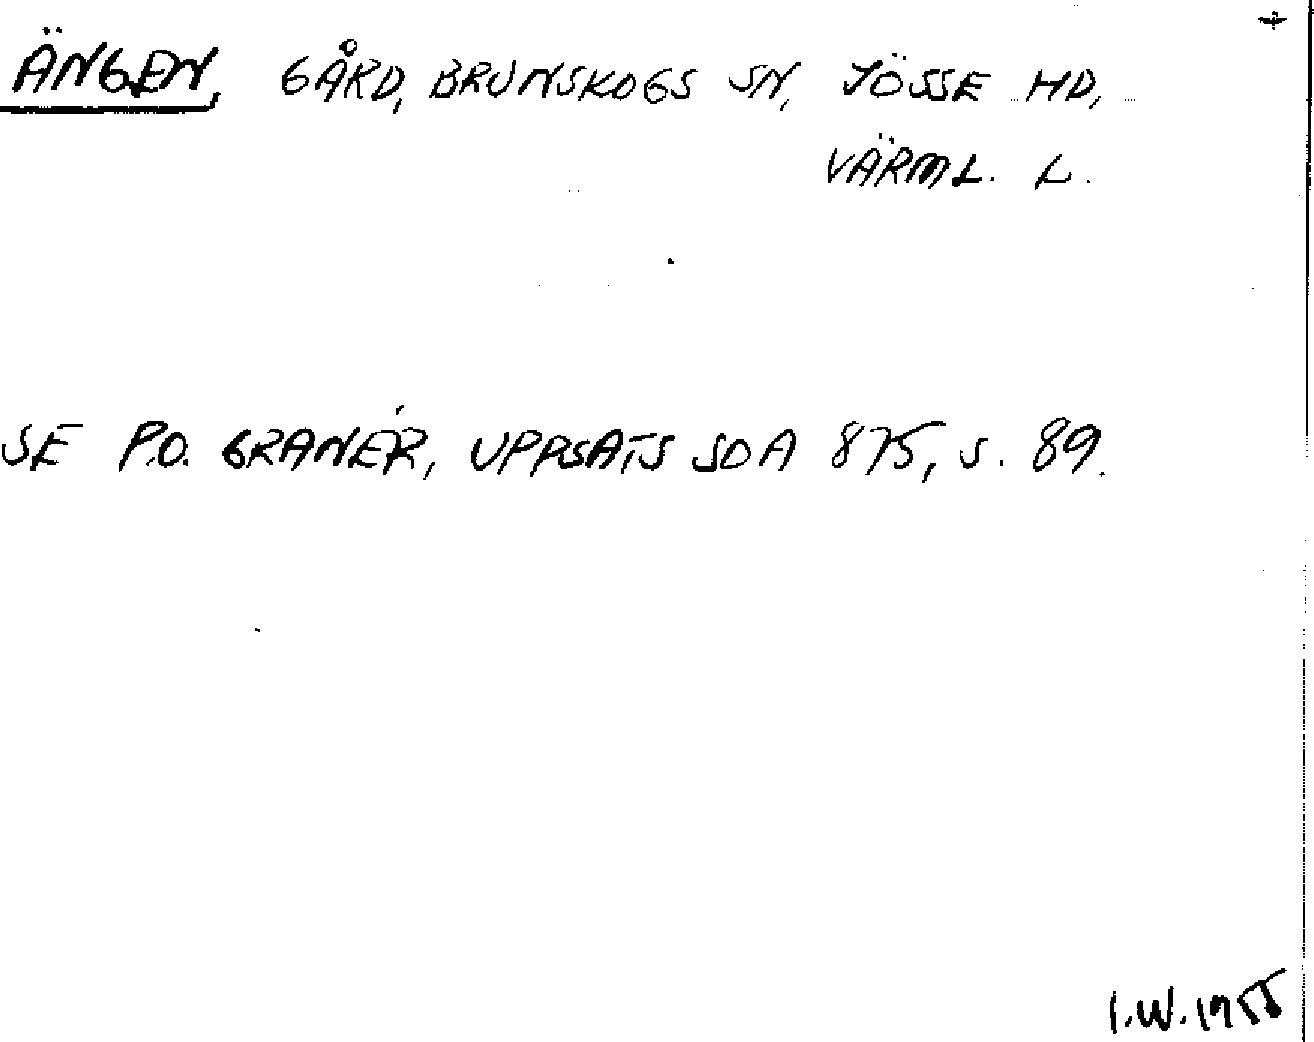 ÄNGEN, GÅRD, BRUNSKOGS SN, JÖSSE HD,
VÄRML. L.
SE P.O. GRANÉR, UPPSATS SOA 875, S. 89.
I.W. 1955